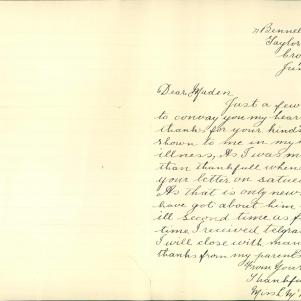 Bennel
Taylor
Dear Maden
Just a few
to convay you my hear
thanks for your kind
shown to me in my
illness, As I was m
than thankfull when
your letter on satu
As that is only new
have got about him
ill second time as f
time I received telgra
I will close with man
thanks from my parent
From Your
Thankfu
Miss